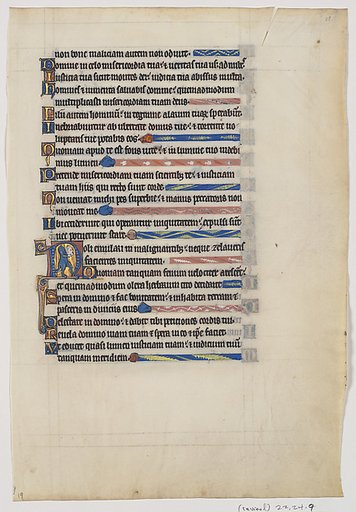 non bone maliciam autem non odivit.
Domine in celo misericordia tua: & veritas tua usq; ad nubes
Iusticia tua sicut montes dei: iudicia tua abissus multa.
Homines & iumenta salvabis domine: quemadmodum
multiplicasti misericordiam tuam deus.
Filii autem hominum: in tegmine alarum tuarum sperabunt.
Inebriabuntur ab ubertate domus tue: & torrente vo
luptatis tue potabis eos.
Quoniam apud te est fons vite: & in lumine tuo videbi
mus lumen.
Pretende misericordiam tuam scientibus te: & iusticiam
tuam hiis qui recto sunt corde.
Non veniat michi pes superbie: & manus peccatoris non
moveat me.
Ibi ceciderunt qui operantur iniquitatem: expulsi sunt
nec potuerunt stare.
Noli emulari in malignantibus: neque zelaveris
facientes iniquitatem.
Quoniam tanquam fenum velociter arescent:
et quemadmodum olera herbarum cito decident.
Spera in domino & fac bonitatem: & inhabita terram &
pasceris in diviciis eius.
Delectare in domino: & dabit tibi peticiones cordis tui.
Revela domino viam tuam & spera in eo: & ipse faciet.
Et educet quasi lumen iusticiam tuam: & iudicium tuum
tanquam meridiem.
19
22.24.9